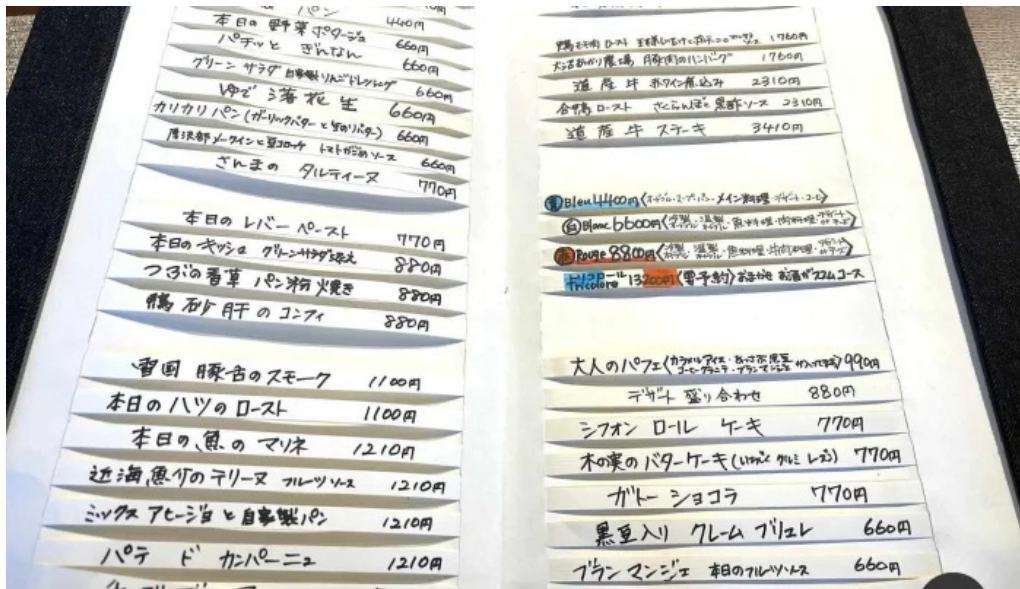 パン 440円
本日の 野菜ポタージュ 660円
パチッと ぎんなん 660円
グリーン サラダ 自家製りんごドレッシング 660円
ゆで 落花生 660円
カリカリ パン(ガーリックバターと 生のりバター) 660円
厚沢部メークインと豆コロッケ トマト ソース 660円
さんまの タルティーヌ 770円
本日の レバー ペースト 770円
本日の キッシュ グリーンサラダ添え 880円
つぶの香草 パン粉焼き 880円
鴨 砂肝の コンフィ 880円
豚舌のスモーク 1100円
本日のハツのロースト 1100円
本日の魚の マリネ 1210円
近海魚介のテリーヌ フルーツソース 1210円
ミックス アヒージョと 自家製パン 1210円
パテ ド カンパーニュ 1210円
鴨もも肉 ロースト 1760円
大沼あかり農場 豚肉のハンバーグ 1760円
道産牛 赤ワイン煮込み 2310円
合鴨ロースト さくらんぼと黒酢ソース 2310円
道産牛ステーキ 3410円
青 Bleu 4400円〈オードブル・スープ・パン・メイン料理・デザート・コーヒー〉
白 Blanc 6600円〈冷製オードブル・温製オードブル・魚料理・肉料理・デザート〉
赤 Rouge 8800円〈冷製オードブル・温製オードブル・魚料理・肉料理・デザート〉
トリコロール tricolore 13200円〈要予約〉おまかせ お酒がススムコース
大人のパフェ〈カラメルアイス・黒豆 コーヒーグラニテ・ブランマンジェ が入ってます〉990円
デザート 盛り合わせ 880円
シフォン ロール ケーキ 770円
木の実のバターケーキ(いちじく クルミ レーズン) 770円
ガトー ショコラ 770円
黒豆入り クレーム ブリュレ 660円
ブラン マンジェ 本日のフルーツソース 660円